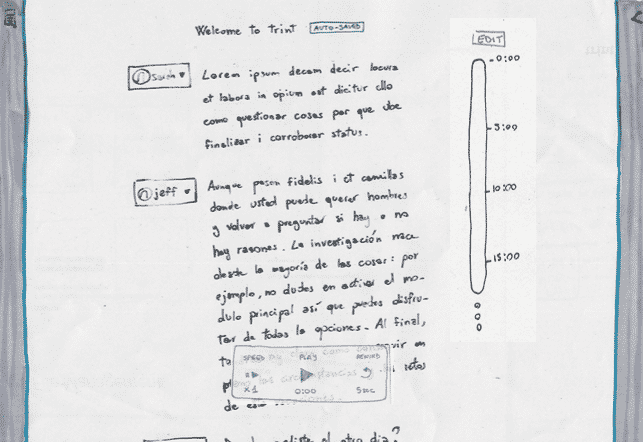 Welcome to trint AUTO-SAVED
EDIT
Sarah
Lorem ipsum decam decir locura
et labora in opium est dicitur ello
como questionar cosas por que ube
finalizar i corroborar status.
jeff
Aunque pasen fidelis i et camillas
donde usted puede querer hombres
y volver a preguntar si hay o no
hay razones. La investigación nace
desde la mayoría de las cosas: por
ejemplo, no dudes en activar el mo-
dulo principal así que puedes disfru-
tar de todas la opciones. Al final,
en
retos
de
SPEED PLAY REWIND
x1 0:00 5sec
el otro dia?
0:00
5:00
10:00
15:00